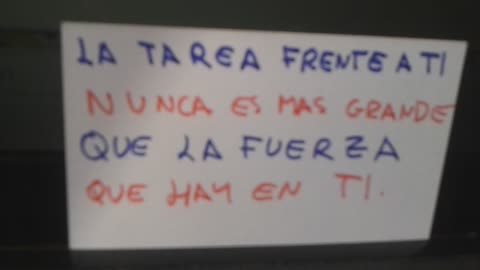 LA TAREA FRENTE A TI
NUNCA ES MAS GRANDE
QUE LA FUERZA
QUE HAY EN TI.